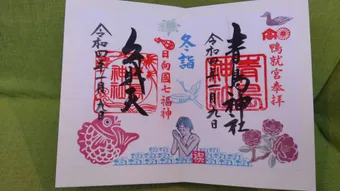 鴨就宮奉拝
青島神社
令和四年一月九日
冬詣
日向國七福神
弁財天
令和四年一月九日
禊